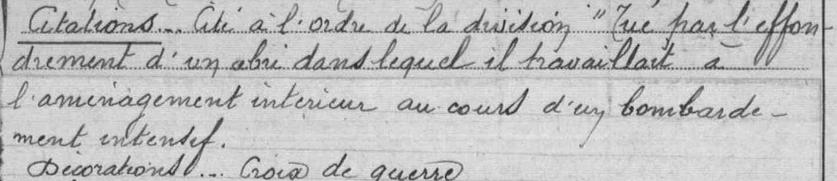 Citations... Cité à l'ordre de la division "Tué par l'effon-
drement d'un abri dans lequel il travaillait à
l'aménagement intérieur au cours d'un bombarde-
ment intensif.
Décorations... Croix de guerre